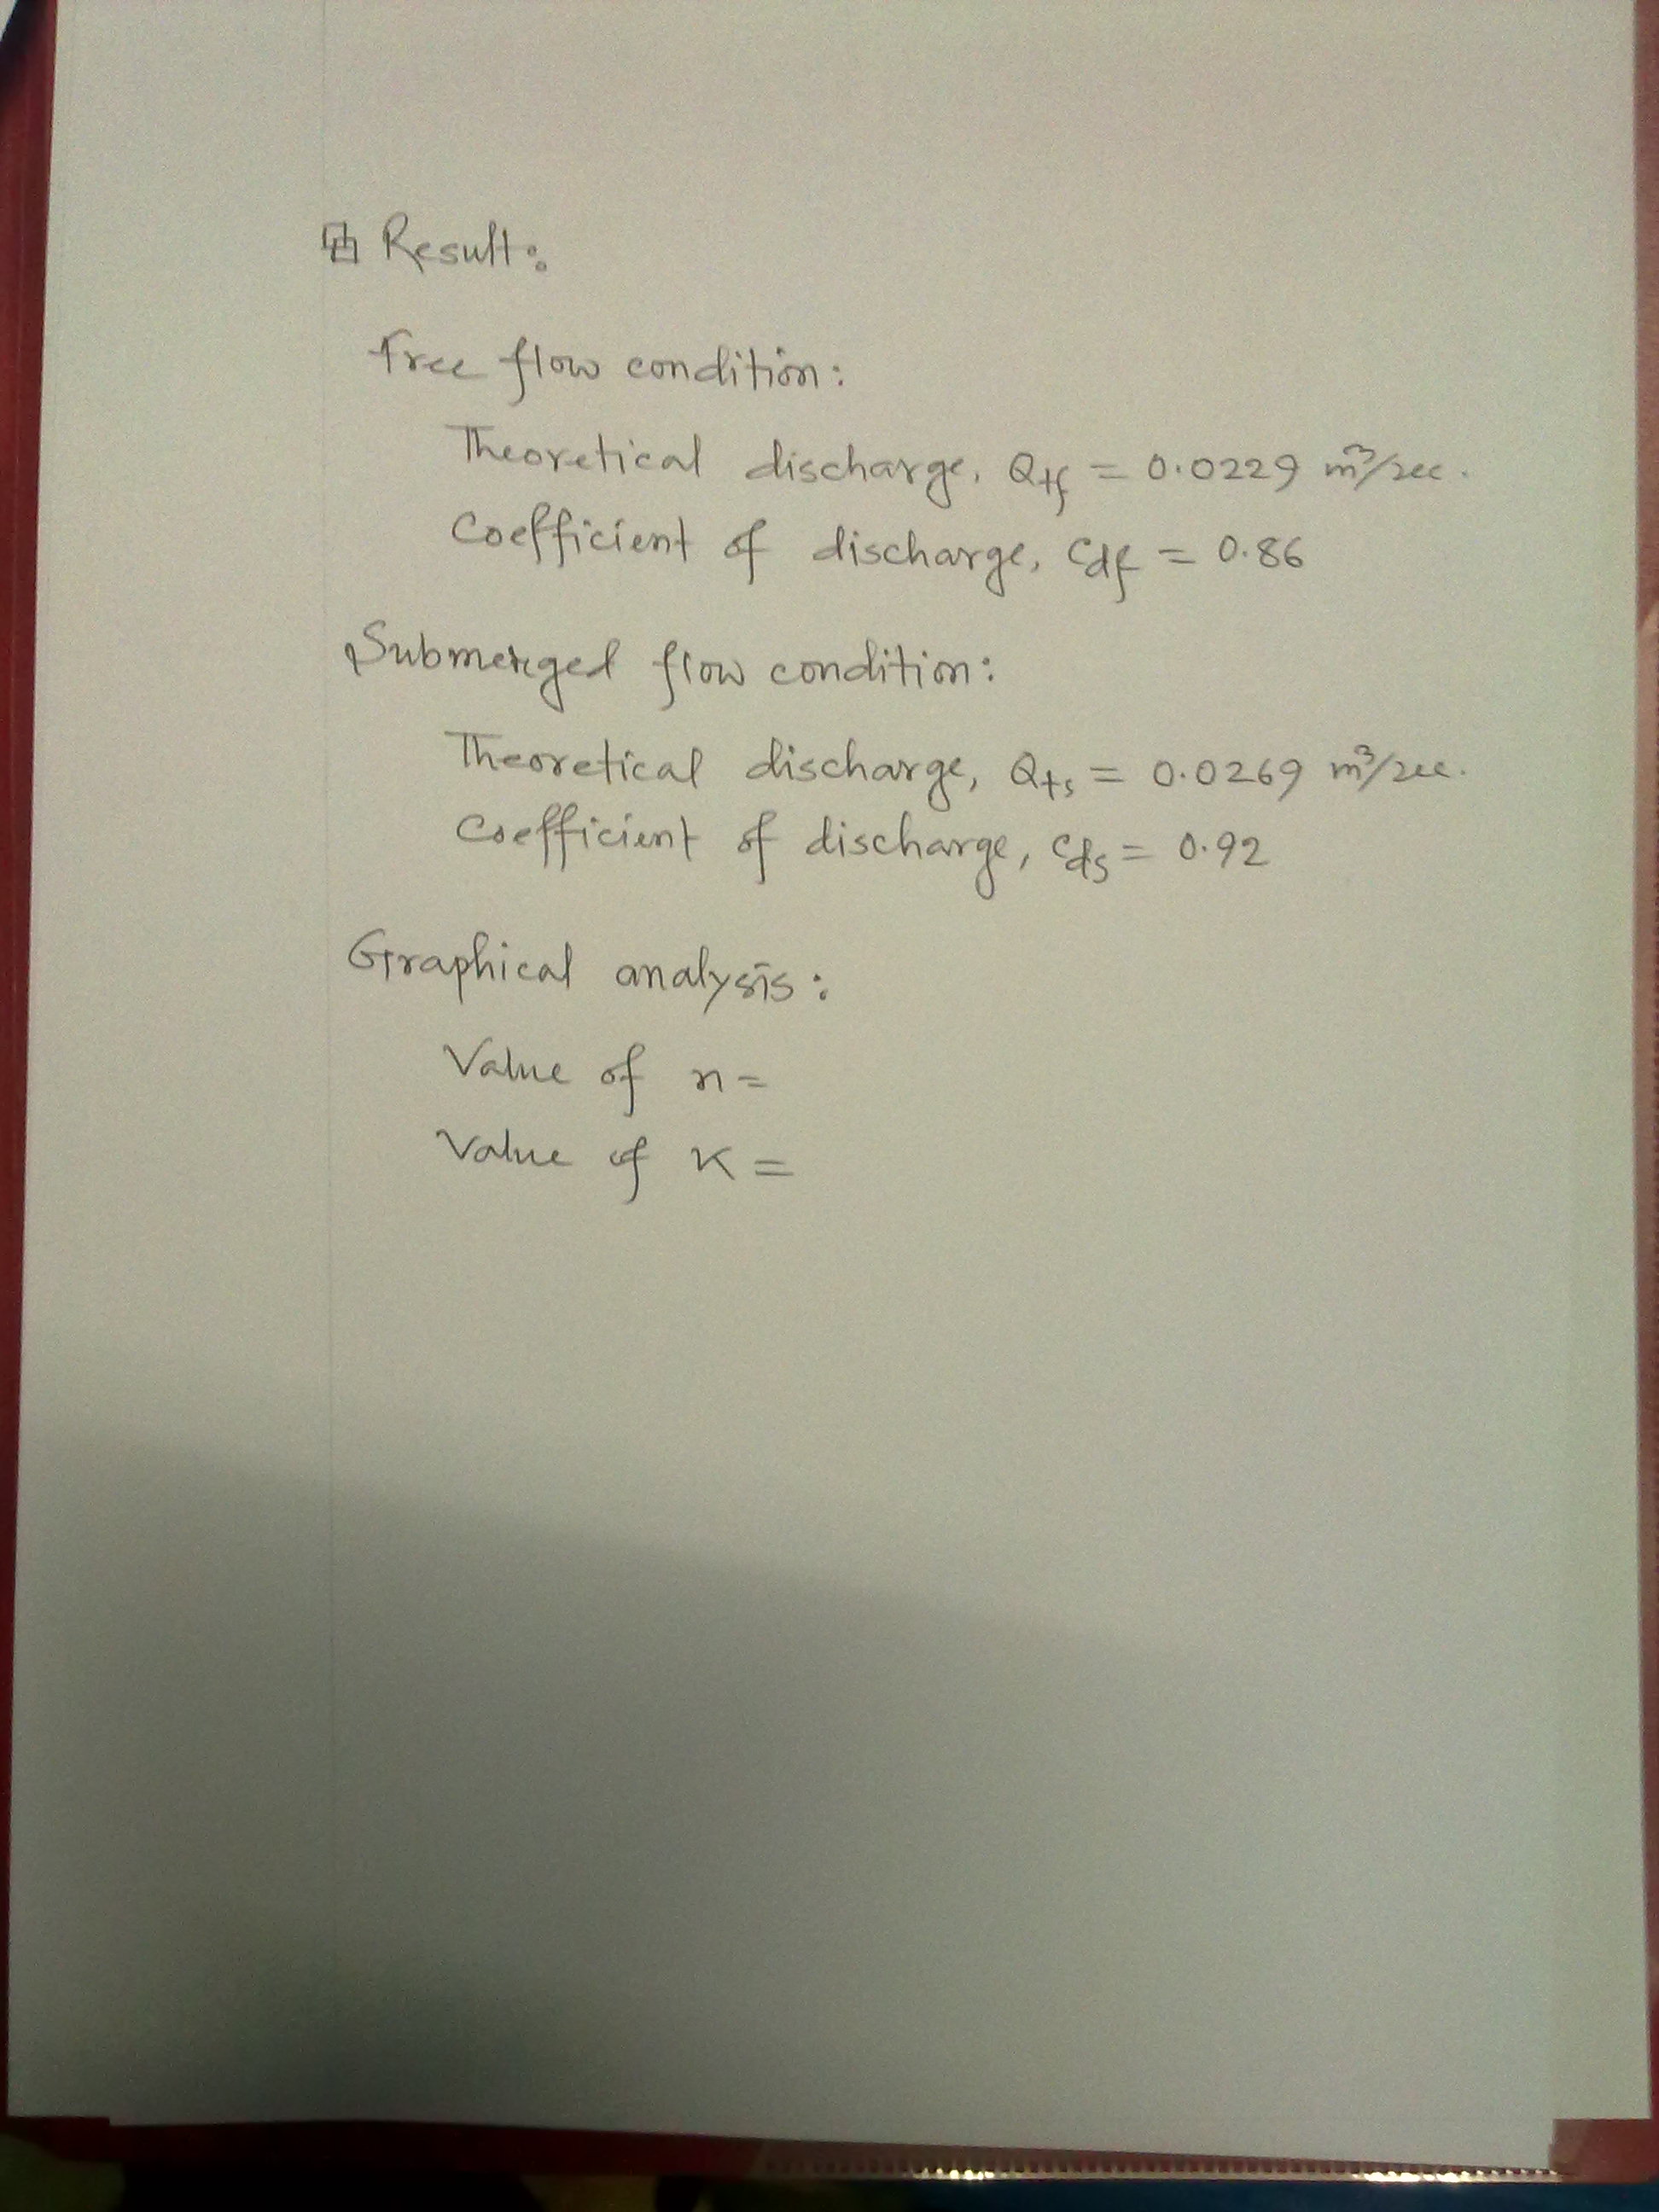 Result:
Free flow condition:
Theoretical discharge, Qtf = 0.0229 m³/sec.
Coefficient of discharge, Cdf = 0.86
Submerged flow condition:
Theoretical discharge, Qts = 0.0269 m³/sec.
Coefficient of discharge, Cds = 0.92
Graphical analysis:
Value of n =
Value of K =